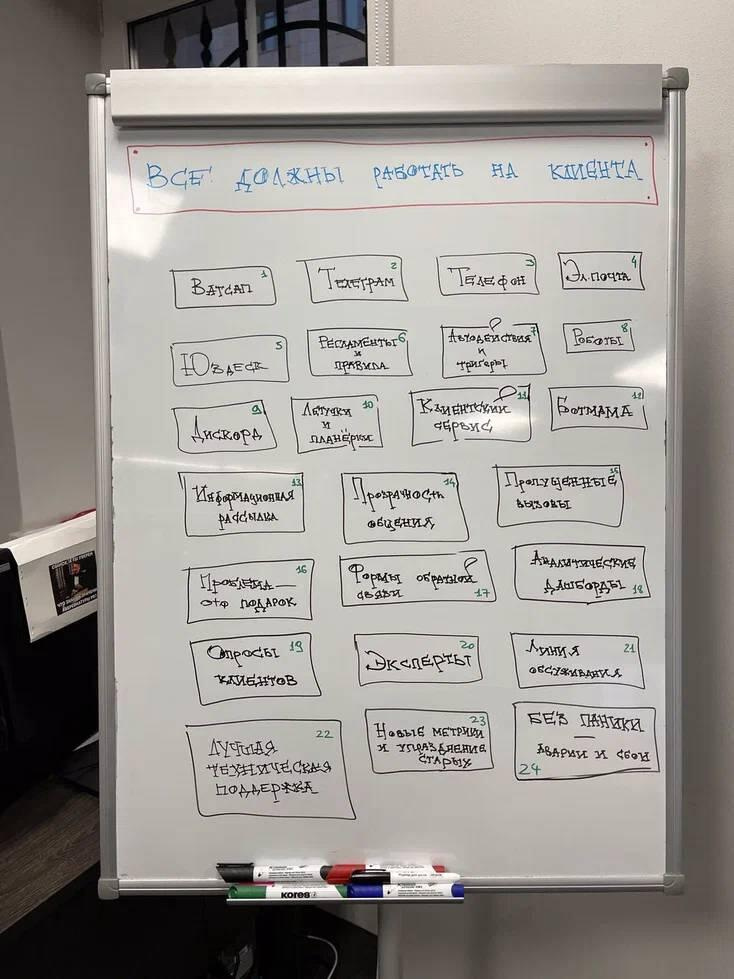 ВСЕ ДОЛЖНЫ РАБОТАТЬ НА КЛИЕНТА
Ватсап 1
Телеграм 2
Телефон 3
Эл.почта 4
Юздеск 5
Регламенты 6
и
правила
Автодействия 7
и
тригеры
Роботы 8
Дискорд 9
Летучки 10
и
планёрки
Клиентский 11
сервис
Ботмама 12
Информационная 13
рассылка
Прозрачность 14
общения
Пропущенные 15
вызовы
Проблема — 16
это подарок
Формы обратной
связи 17
Аналитические
дашборды 18
Опросы 19
клиентов
Эксперты 20
Линия 21
обсуживания
Лучшая 22
техническая
поддержка
Новые метрики 23
и упразднение
старых
БЕЗ ПАНИКИ
—
аварии и сбои
24
kores